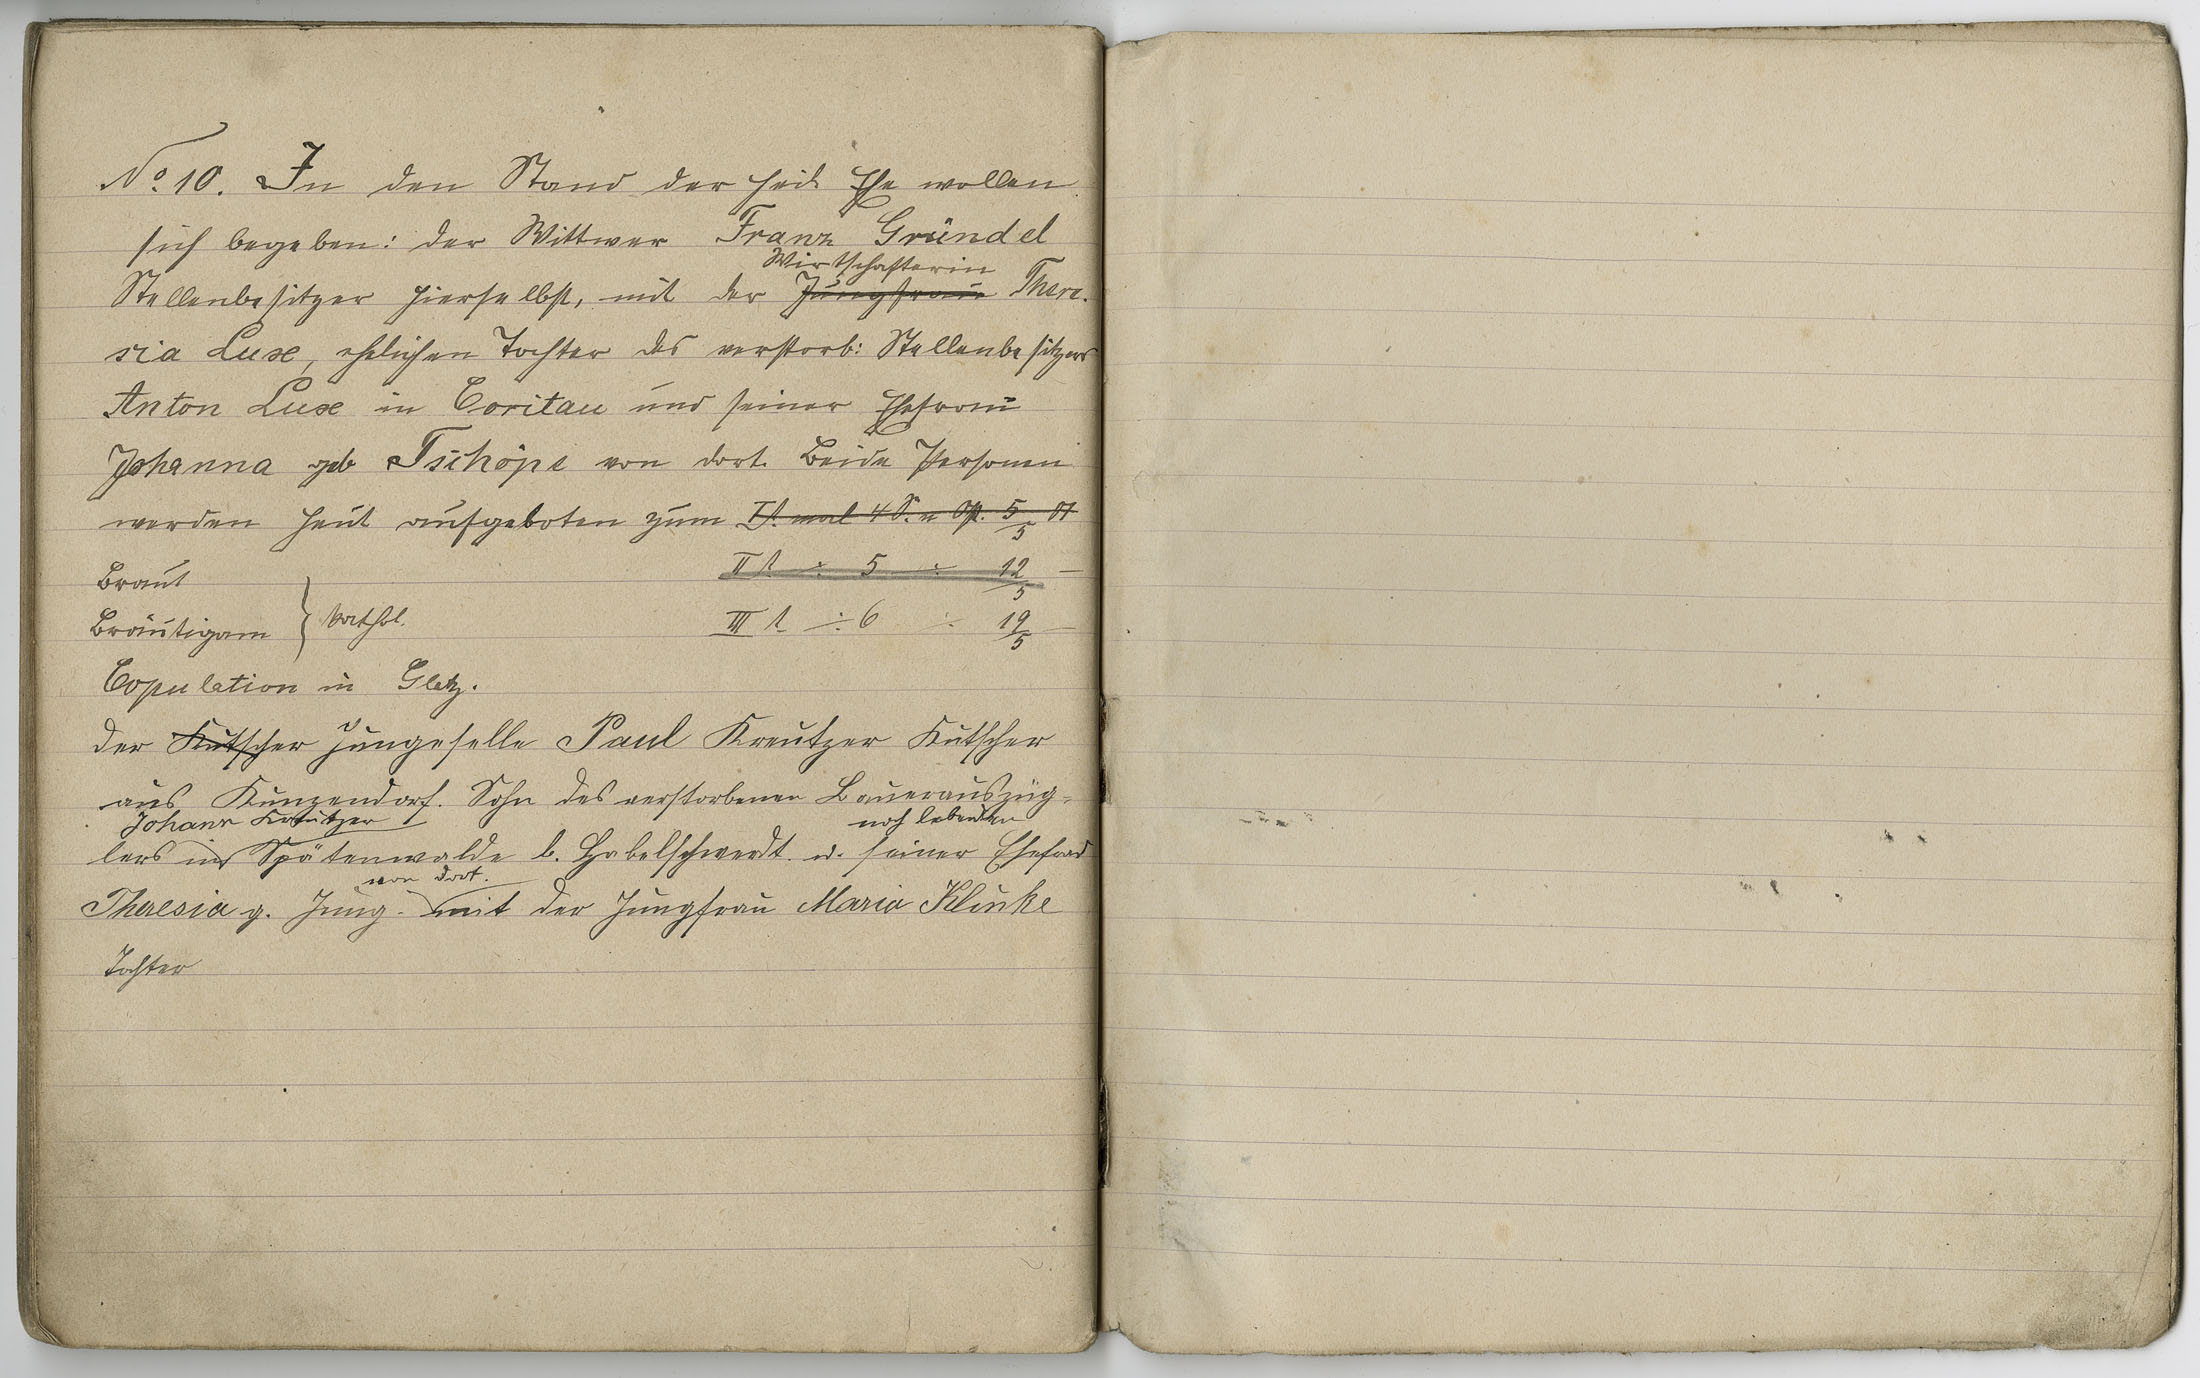 No. 10. In den Stand der heil. Ehe wollen
sich begeben: der Wittwer Franz Gründel
Wirtschafterin
Stellenbesitzer hierselbst, mit der Jungfrau There-
sia Luxe, ehelichen Tochter des verstorb: Stellenbesitzers
Anton Luxe in Coritau und seiner Ehefrau
Johanna geb Tschöpe von dort. Beide Personen
werden heut aufgeboten zum I t. mal 4 S. n Ost. 5/5 01
Braut II t ÷ 5 ÷ 12/5 —
Bräutigam } kathol. III t. ÷ 6 ÷ 19/5 —
Copulation in Glatz.
der Kutscher Jungeselle Paul Kreutzer Kutscher
aus Kunzendorf. Sohn des verstorbenen Bauerauszüg-
Johann Kreutzer noch lebenden
lers in Spätenwalde b. Habelschwerdt. u. seiner Ehefrau
von dort.
Theresia g. Jung. mit der Jungfrau Maria Klinke
Tochter